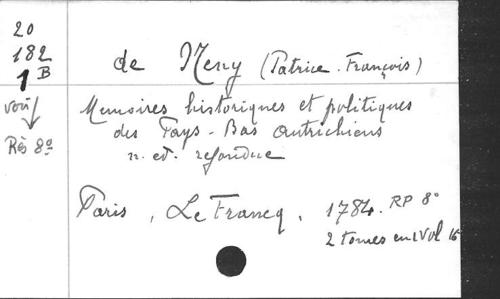 20
182
1 B
voir
Rés 8º
de Neny (Patrice-François)
Memoires historiques et politiques
des Pays-Bas autrichiens
n. ed. refondue
Paris, Le Francq, 1784. RP 8º
2 tomes en 1 Vol 16